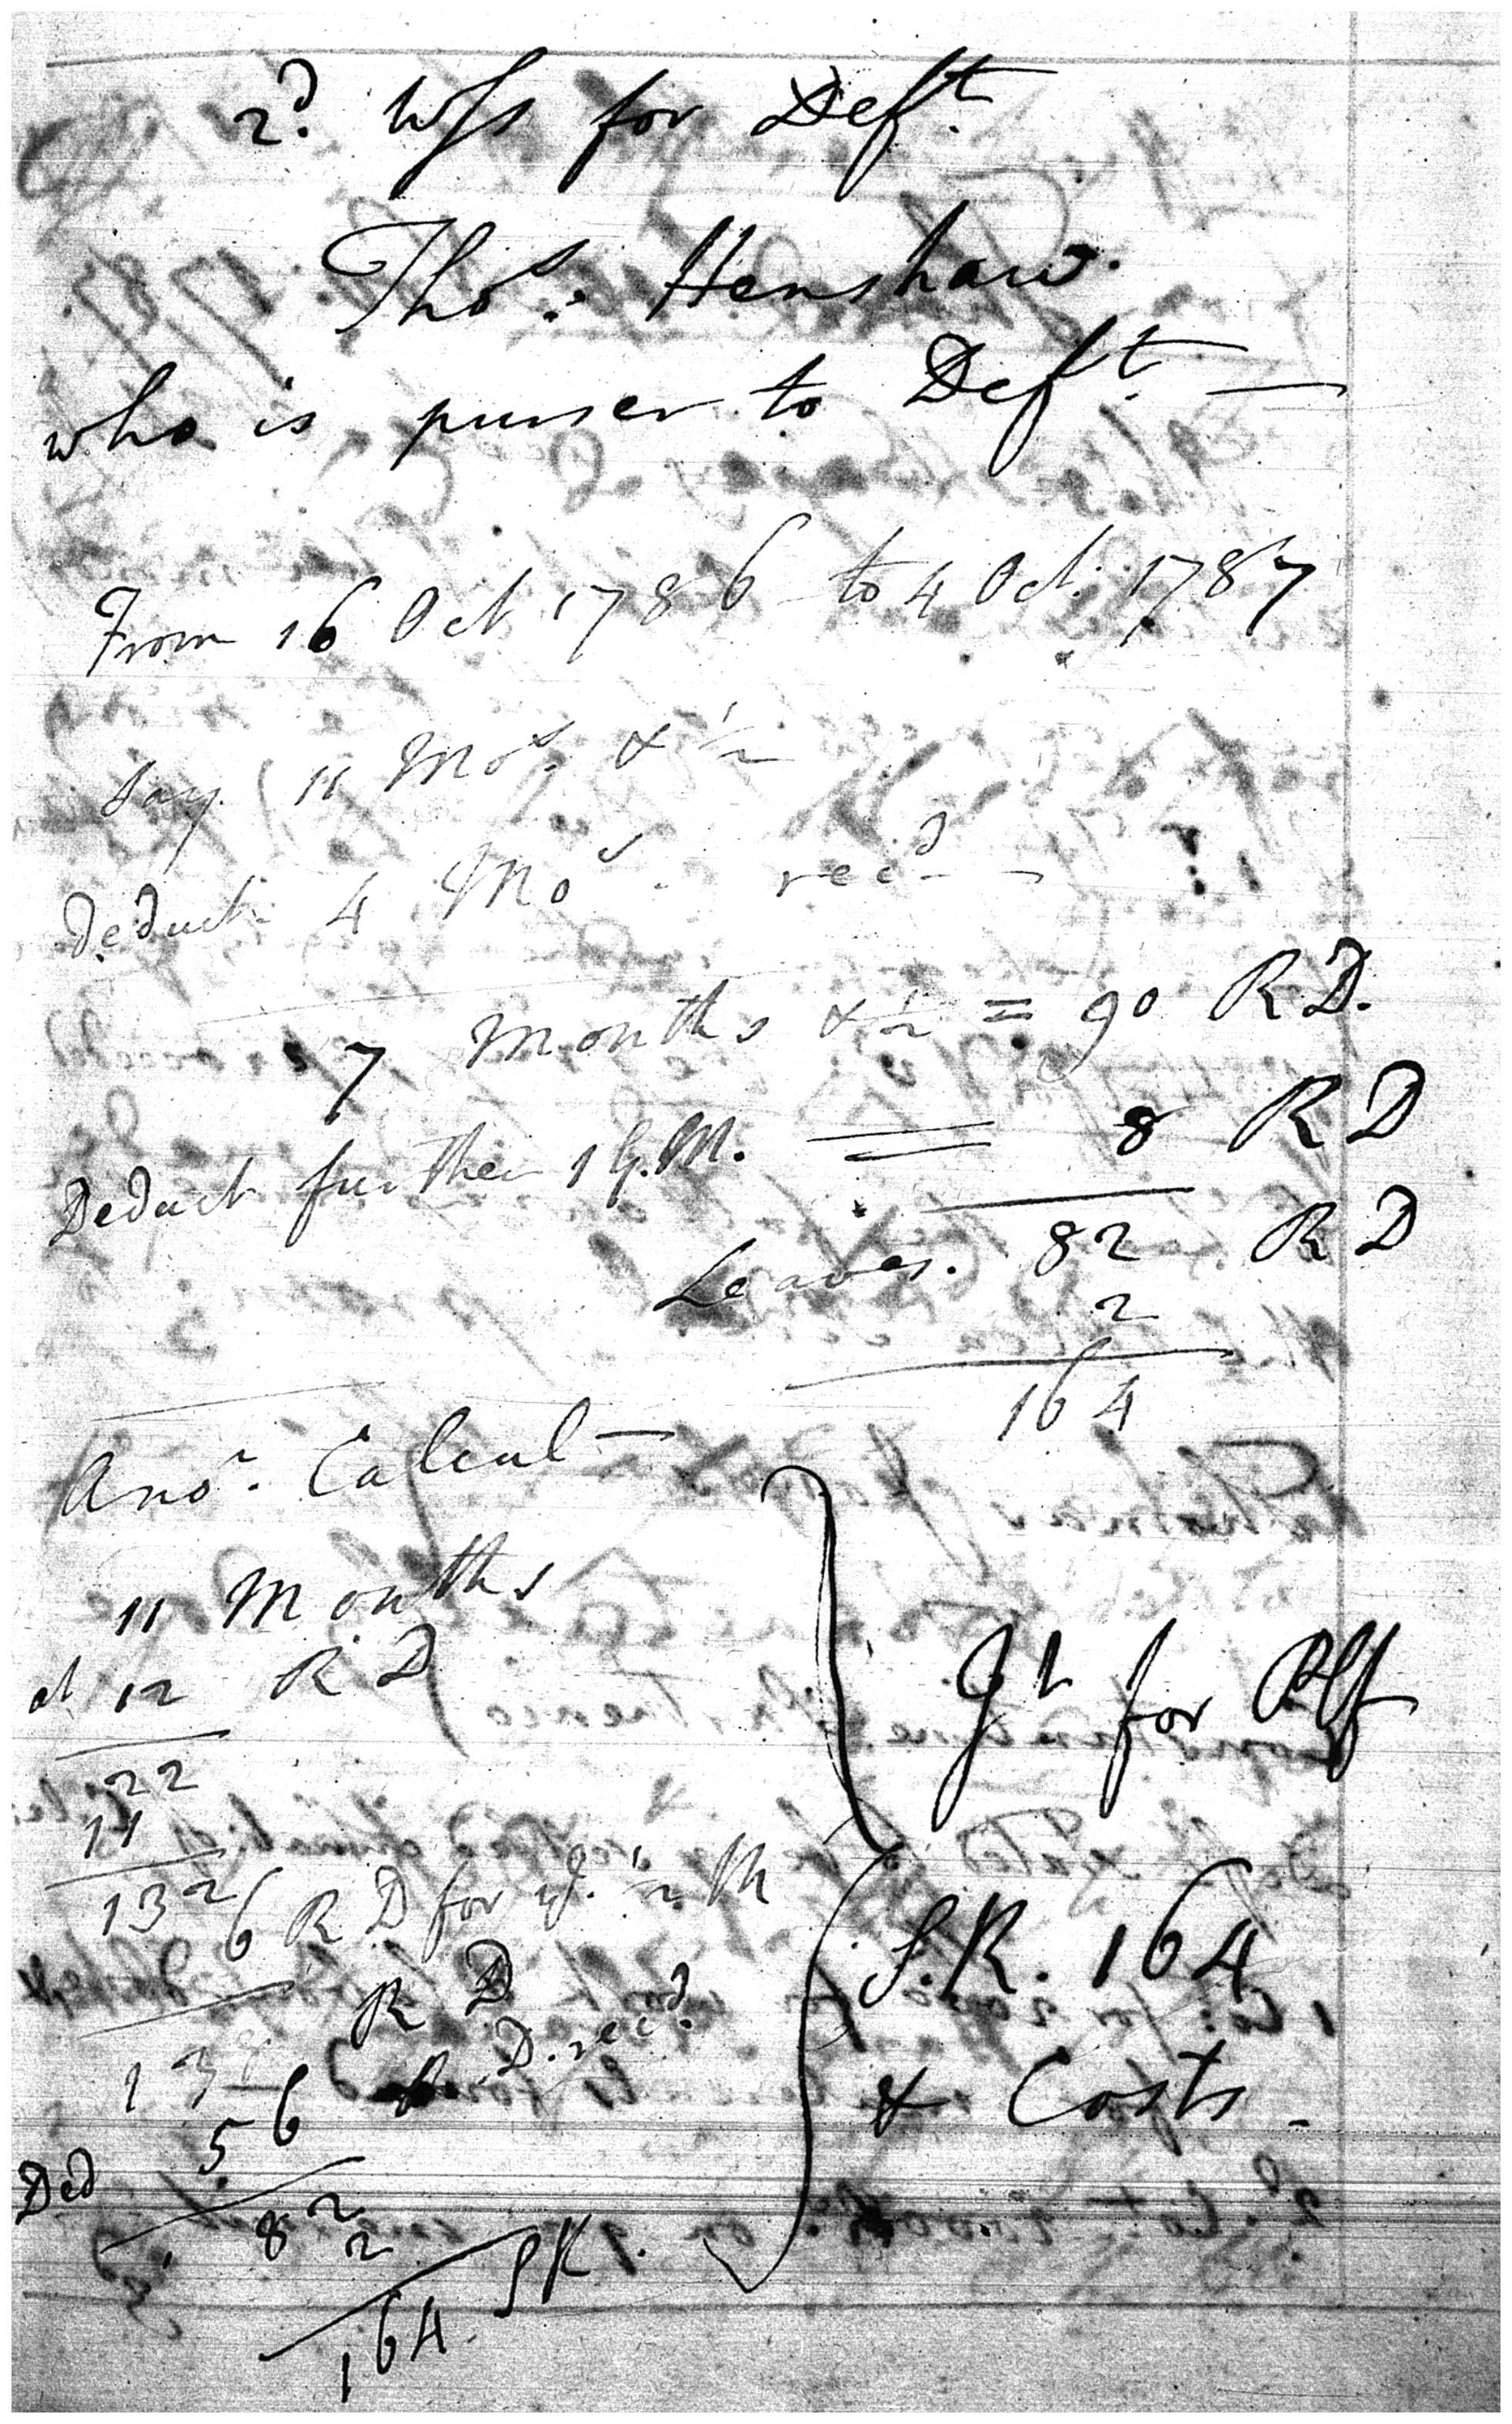 2d. Wss for Deft.
Thos. Henshaw.
who is purser to Deft. —
From 16 Oct 1786 to 4 Oct. 1787
Say 11 Mos. & 1/2
Deduct 4 Mos. recd —
7 Months & 1/2 = 90 R D.
Deduct further 1 G.M. = 8 R D
Leaves. 82 R D
2
164
Anor. Calcul —
11 Months
at 12 R D
22
11
132
6 R D for ye. 1/2 M
138 R D
Ded 56 R D. recd.
82
2
164 S R.
Jt for Plf
S.R. 164
& Costs –